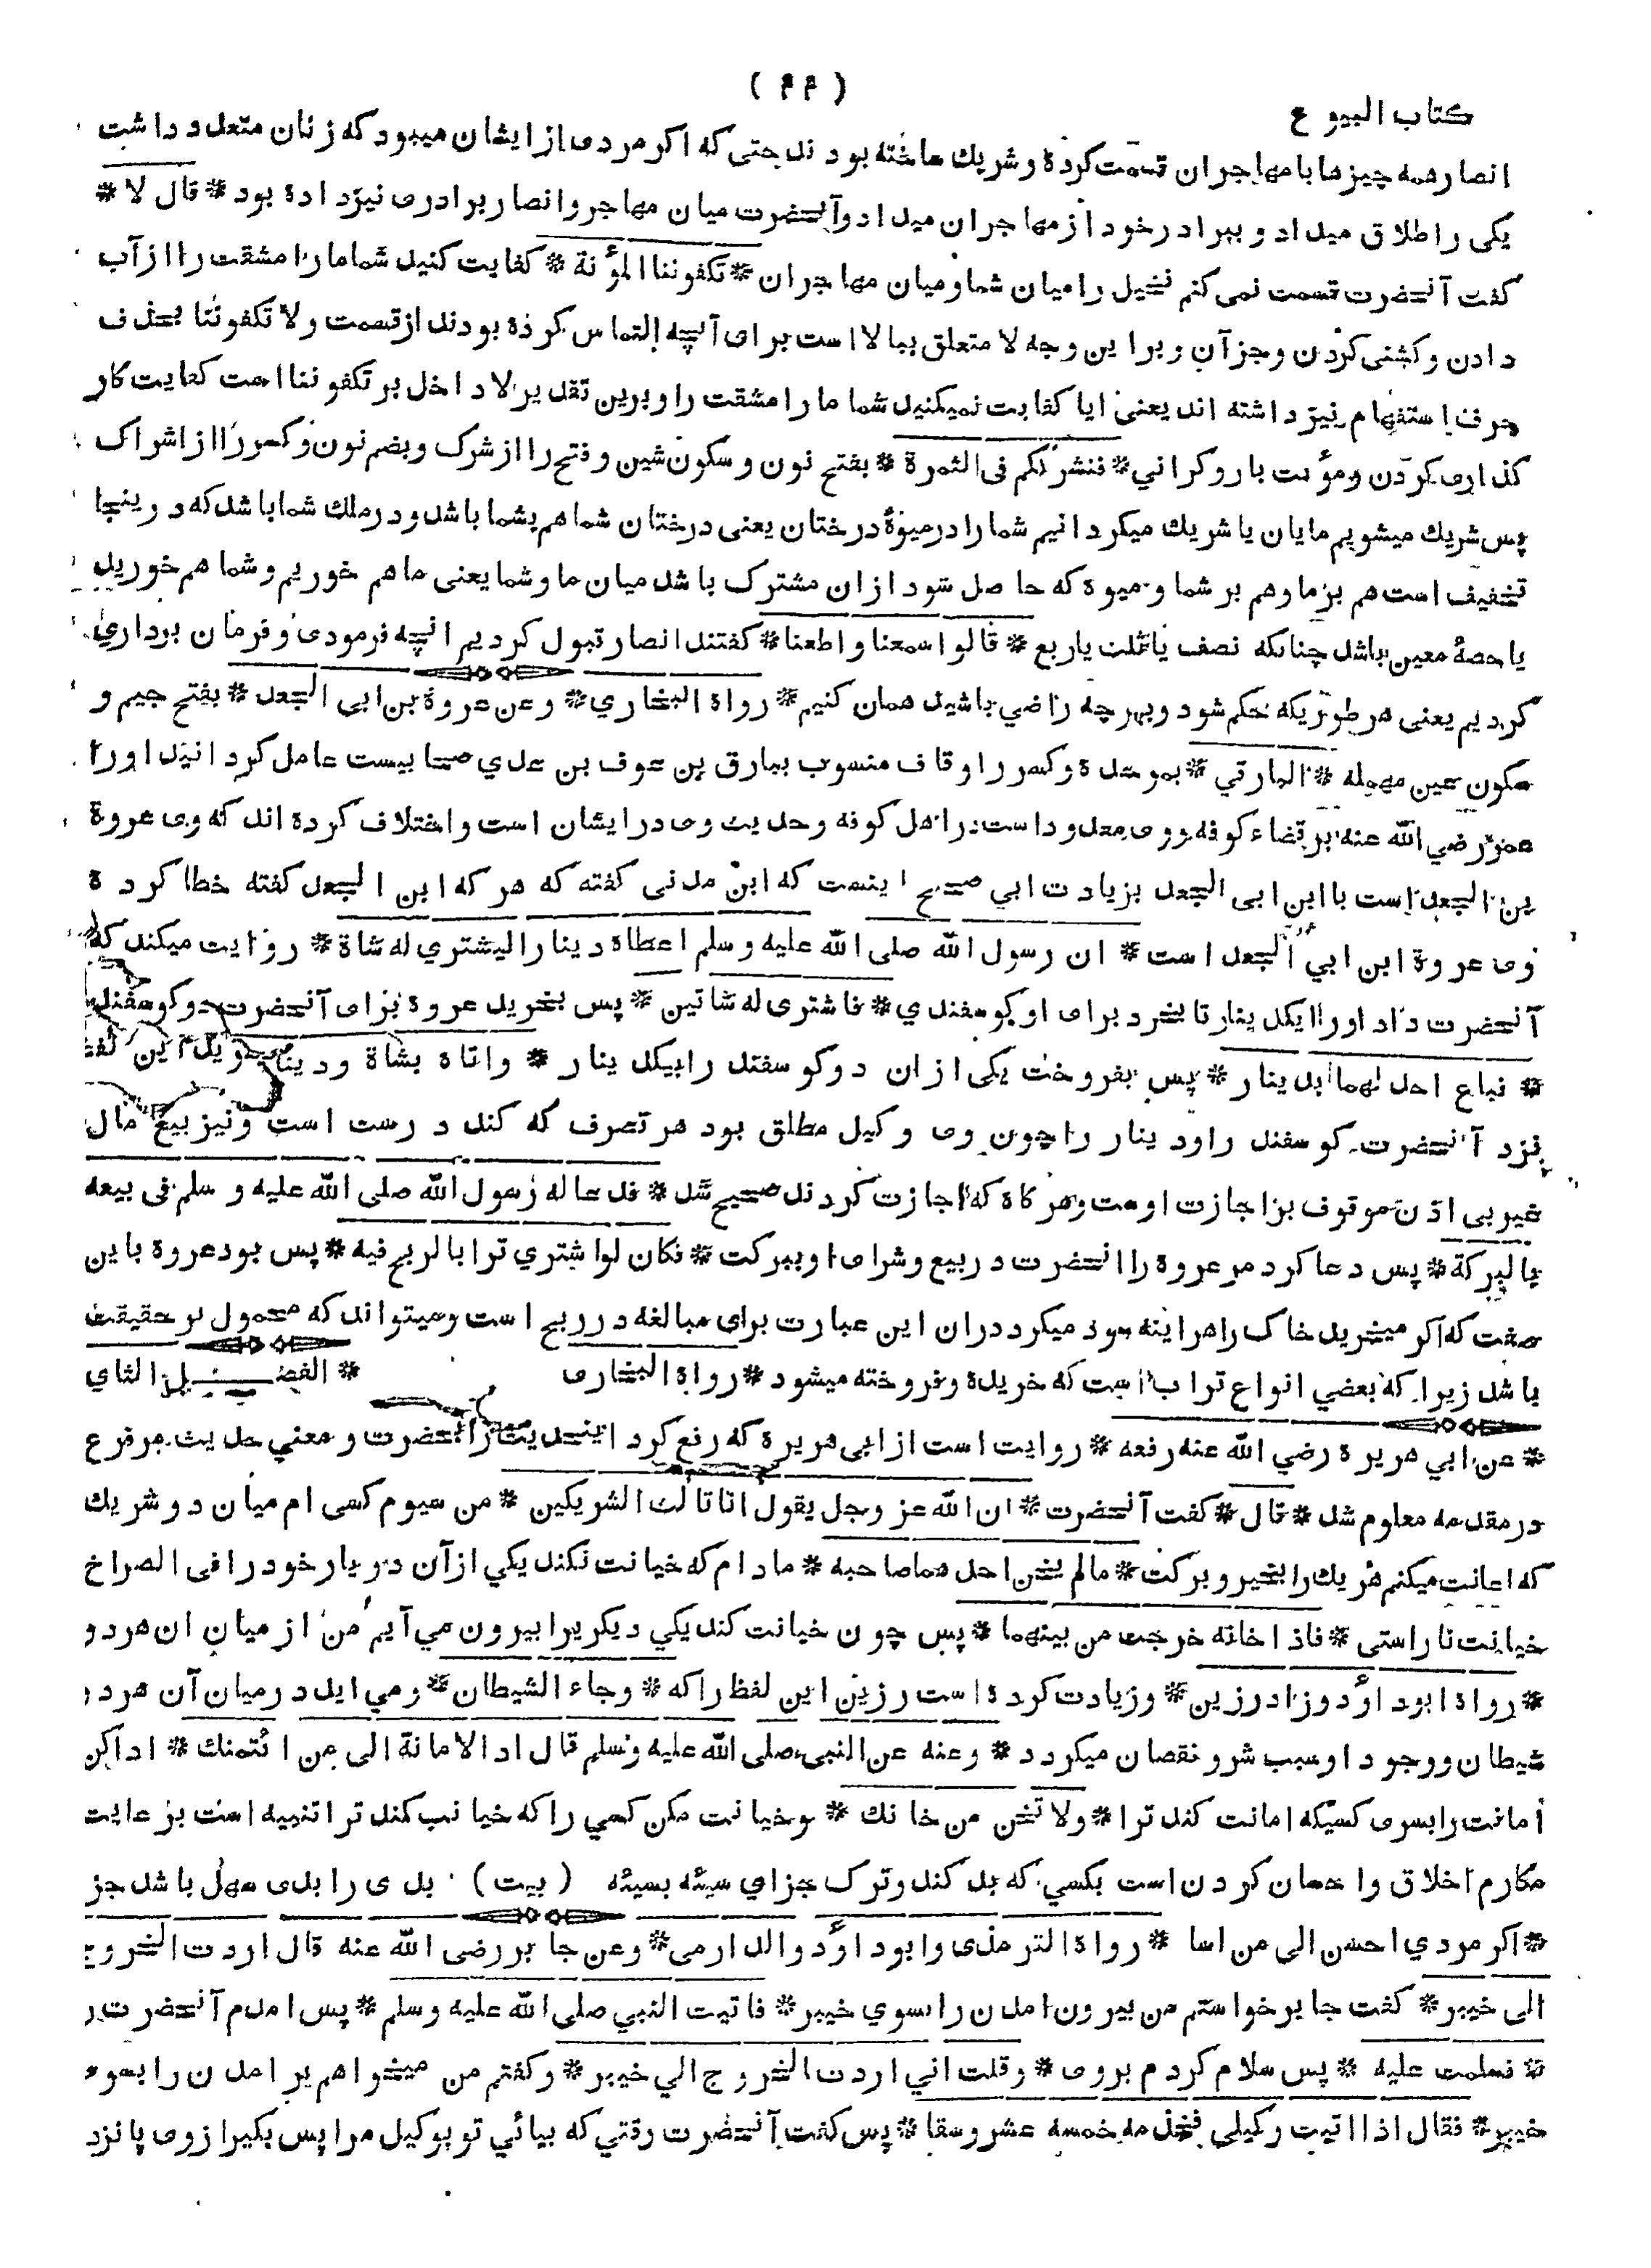 ( ۴۴ )
كتاب البيوع
انصار همه چيزها با مهاجران قسمت كرده و شريك ساخته بودند حتى كه اكر مردى از ايشان ميبود كه زنان متعدد داشت
يكى را طلاق ميداد و ببرادر خود از مهاجران ميداد و آنحضرت ميان مهاجر و انصار برادرى نيز داده بود * قال لا *
كفت آنحضرت قسمت نمى كنم نخيل را ميان شما و ميان مهاجران * تكفوننا المؤنة * كفايت كنيد شما ما را مشقت را از آب
دادن و كشنى كردن و جز آن و برا ين وجه لا متعلق ببالا است براى آنچه التماس كرده بودند از قسمت و لا تكفوننا بحذف
حرف استفهام نيز داشته اند يعنى ايا كفايت نميكنيد شما ما را مشقت را و برين تقدير لا داخل بر تكفوننا است كفايت كار
كذارى كردن و مؤنت بار و كراني * فنشرككم فى الثمرة * بفتح نون و سكون شين و فتح را از شرك و بضم نون و كسر را از اشراك
پس شريك ميشويم مايان يا شريك ميكردانيم شما را در ميوۀ درختان يعنى درختان شما هم بشما باشد و در ملك شما باشد كه درينجا
تخفيف است هم بر ما و هم بر شما و ميوه كه حاصل شود ازان مشترك باشد ميان ما و شما يعنى ما هم خوريم و شما هم خوريد
يا حصۀ معين باشد چنانكه نصف يا ثلث يا ربع * قالوا سمعنا و اطعنا * كفتند انصار قبول كرديم انچه فرمودى و فرمان بردارى
كرديم يعنى هر طوريكه حكم شود و بهرچه راضي باشيد همان كنيم * رواه البخاري * و عن عروة بن ابى الجعد * بفتح جيم و
سكون عين مهمله * البارقي * بموحده و كسر را و قاف منسوب ببارق بن عوف بن عدي صحابيست عامل كردانيد او را
عمر رضي الله عنه بر قضاء كوفه و وى معدود است در اهل كوفه و حديث وى در ايشان است و اختلاف كرده اند كه وى عروة
بن الجعد است يا ابن ابى الجعد بزيادت ابي صحيح اينست كه ابن مدنى كفته كه هر كه ابن الجعد كفته خطا كرده
وى عروة ابن ابي الجعد است * ان رسول الله صلى الله عليه و سلم اعطاه دينارا ليشتري له شاة * روايت ميكند كه
آنحضرت داد او را يكدينار تا بخرد براى او كوسفندي * فاشترى له شاتين * پس بخريد عروة براى آنحضرت دو كوسفند
* فباع احدٰهما بدينار * پس بفروخت يكى ازان دو كوسفند را بيكدينار * و اتاه بشاة و دينار
نزد آنحضرت كوسفند را و دينار را چون وى وكيل مطلق بود هر تصرف كه كند درست است و نيز بيع مال
غير بى اذن موقوف بر اجازت اوست و هر كاه كه اجازت كردند صحيح شد * فدعا له رسول الله صلى الله عليه و سلم فى بيعه
بالبركة * پس دعا كرد مر عروة را آنحضرت در بيع و شراى او ببركت * فكان لو اشتري ترابا لربح فيه * پس بود عروة باين
صفت كه اكر ميخريد خاك را هر اينه سود ميكرد دران اين عبارت براى مبالغه در ربح است و ميتواند كه محمول بر حقيقت
باشد زيرا كه بعضي انواع تراب است كه خريده و فروخته ميشود * رواه البخارى * الفصل الثاني
* عن ابي هريرة رضي الله عنه رفعه * روايت است از ابى هريرة كه رفع كرد اينحديث را بآنحضرت و معني حديث مرفوع
در مقدمه معلوم شد * قال * كفت آنحضرت * ان الله عز وجل يقول انا ثالث الشريكين * من سيوم كسى ام ميان دو شريك
كه اعانت ميكنم هر يك را بخير و بركت * مالم يخن احدهما صاحبه * مادام كه خيانت نكند يكي از آن دو يار خود را فى الصراح
خيانت نا راستى * فاذا خانه خرجت من بينهما * پس چون خيانت كند يكي ديكريرا بيرون مي آيم من از ميان ان هر دو
* رواه ابو داؤد و زاد رزين * و زيادت كرده است رزين اين لفظ را كه * و جاء الشيطان * و مي ايد درميان آن هر دو
شيطان و وجود او سبب شر و نقصان ميكردد * و عنه عن النبى صلى الله عليه و سلم قال اد الامانة الى من ائتمنك * ادا كن
امانت را بسوى كسيكه امانت كند ترا * و لا تخن من خانك * و خيانت مكن كسي را كه خيانت كند ترا تنبيه است بر عايت
مكارم اخلاق و احسان كردن است بكسي كه بد كند و ترك جزاي سيئه بسيئه ( بيت ) بدى را بدى سهل باشد جز
* اكر مردي احسن الى من اسا * رواه الترمذى و ابو داؤد و الدارمى * و عن جابر رضى الله عنه قال اردت الخروج
الى خيبر * كفت جابر خواستم من بيرون امدن را بسوي خيبر * فاتيت النبي صلى الله عليه وسلم * پس امدم آنحضرت را
* فسلمت عليه * پس سلام كردم بروى * و قلت اني اردت الخروج الي خيبر * و كفتم من ميخواهم بر امدن را بسوء
خيبر * فقال اذا اتيت وكيلي فخذ منه خمسة عشر وسقا * پس كفت آنحضرت وقتي كه بيائي تو بوكيل مرا پس بكير از وى پانزد